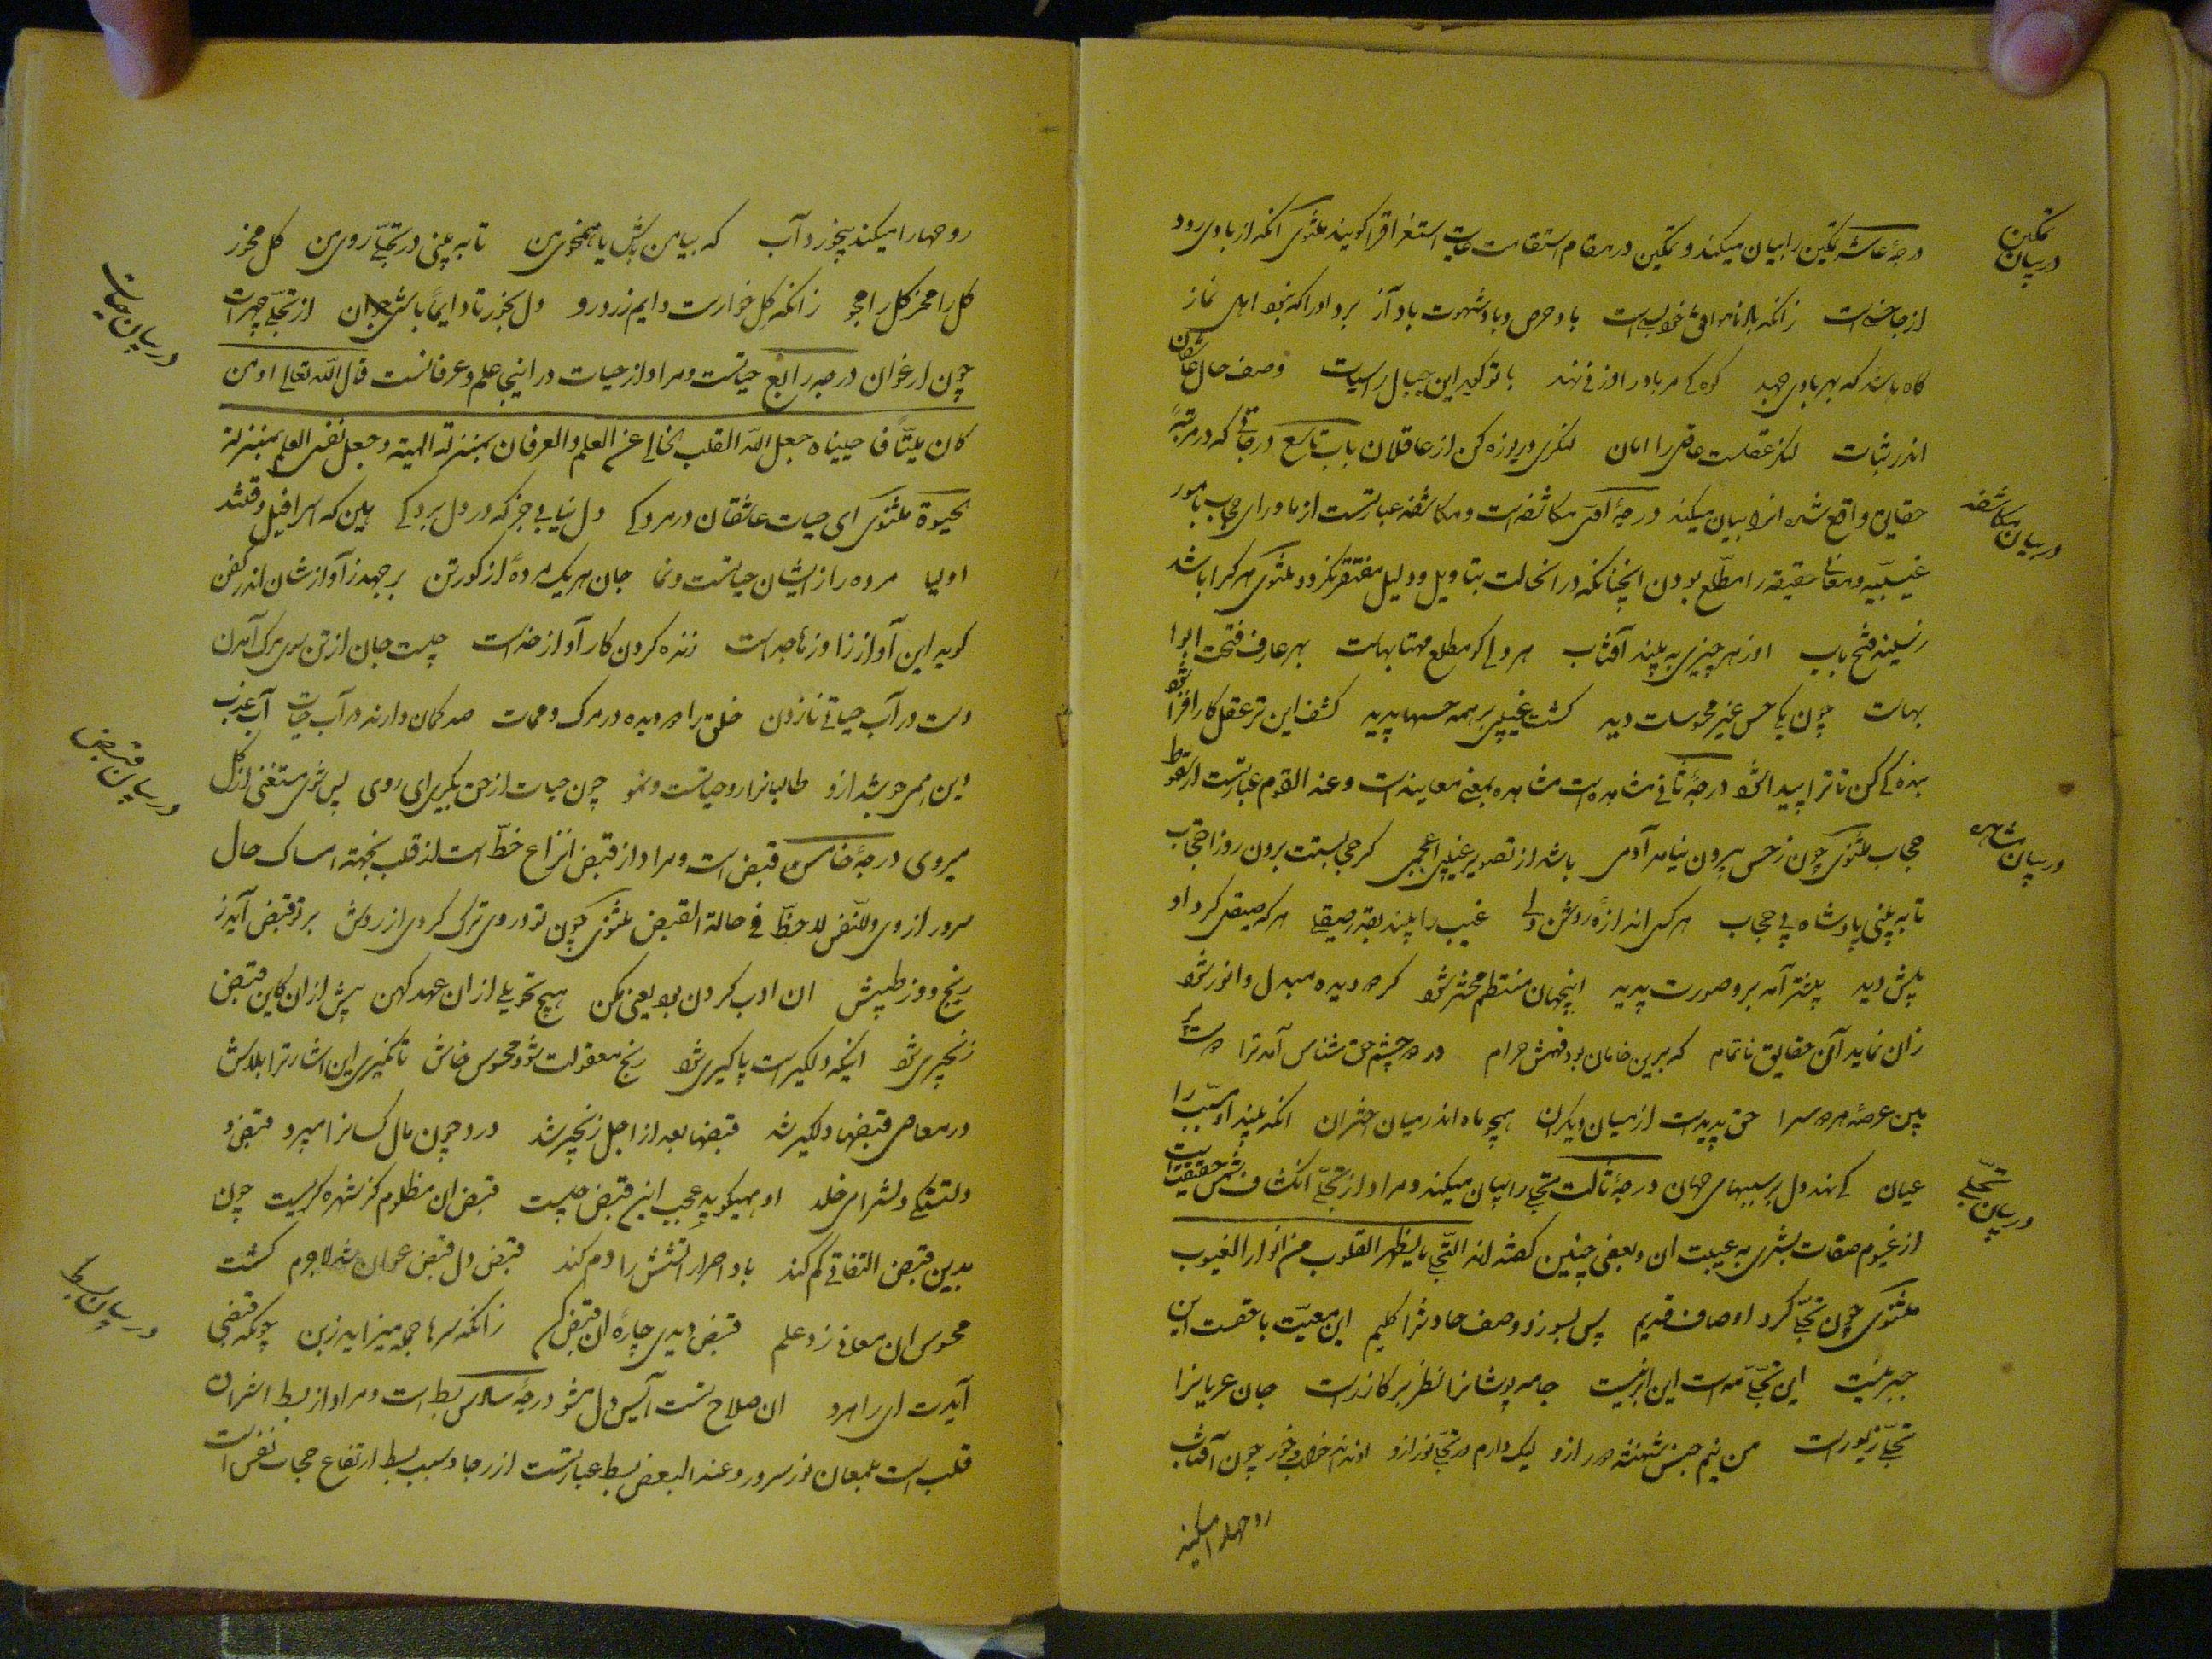 در بیان تمکین
درجهٔ عاشر تمکین را بیان میکند و تمکین در مقام استقامت غایت استغراقرا کویند مثنوی انکه از بادی رود
از جا خسیست زانکه باد ناموافق خود بسیست باد حرص و باد شهوت باد آز برد اورا که نبود اهل نماز
کاه باشد که بهر بادی جهد کوه کی مر باد را وزنی نهد با تو کوید این جبال راسیات وصف حال عاشقان
اندر ثبات لنکر عقلست عاقل را امان لنکری دریوزه کن از عاقلان باب تاسع درجاتی که در مرتبهٔ
در بیان مکاشفه
حقایق واقع شده انرا بیان میکند درجهٔ اول مکاشفه است و مکاشفه عبارتست از ماورای حجاب بامور
غیبیّه و معانی حقیقه را مطّلع بودن انچنانکه در انحالت بتاویل و دلیل مفتقر نکردد مثنوی هر کرا باشد
ز سینه فتح باب او ز هر چیزی به بیند آفتاب هر دلی کو مطلع مهتابهاست بهر عارف فتحت ابوا
بهاست چون یکی حس غیر محسوسات دید کشت غیبی بر همه حسها پدید کشف این نز عقل کار افزا شود
بنده کی کن تا ترا پیدا شود درجهٔ ثانی مشاهده است مشاهده بمعنی معاینه است و عند القوم عبارتست از سقوط
در بیان مشاهده
حجاب مثنوی چون ز حس بیرون نیامد آدمی باشد از تصویر غیبی اعجمی کرمی بستت برون روز احتجاب
تا به بینی پادشاه بی حجاب هر کس اندازهٔ روشن دلی غیب را بیند بقدر صیقلی هر که صیقل کرد او
بیش دید بیشتر آمد برو صورت پدید اینجهان منتظم محشر شود کر دو دیده مبدل و انور شود
زان نماید آن حقایق ناتمام که برین خامان بود فهمش حرام ور دو چشم حق شناس آمد ترا دوست پر
بین عرصهٔ هر دو سرا حق پدیدست از میان دیکران همچو ماه اندر میان اختران انکه بیند او مسبّب را
در بیان تجلّی
عیان کی نهد دل بر سببهای جهان درجهٔ ثالث تجلّی را بیان میکند و مراد از تجلّی انکشاف شمس حقیقت است
از غیوم صفات بشری به غیبت ان و بعضی چنین کفته اند التّجلّی ما یظهر القلوب من انوار الغیوب
مثنوی چون تجلّی کرد اوصاف قدیم پس بسوزد وصف حادث را کلیم این معیّت با حقست این
جبر نیست این تجلّی مه است این ابر نیست جامه پوشانرا نظر بر کازرست جان عریانرا
تجلّی زیورست من نیم جنس شهنشه دور ازو لیک دارم در تجلّی نور ازو اوندم خواب و خور چون آفتاب
روحهارا میکند
روحهارا میکند بیخورد و آب که بیا من باش یا همخوی من تا به بینی در تجلّی روی من کل مخور
کل را مخر کل را مجو زانکه کل خوارست دایم زرد رو دل بخور تا دایماً باشی جوان از تجلّی چهرات
در بیان حیات
چون ارغوان درجهٔ رابع حیاتست و مراد از حیات در اینجا علم و عرفانست قال اللّه تعالی او من
کان میتاً فاحییناه جعل اللّه القلب الخالی عن العلم و العرفان بمنزلة المیته و جعل نفس العلم بمنزلة
الحیوة مثنوی ای حیات عاشقان در مرده کی دل نیابی جز که در دل برده کی هین که اسرافیل وقتند
اولیا مرده را زایشان حیاتست و نما جان هر یک مردهٔ از کور تن برجهد ز آوازشان اندر کفن
کوید این آواز ز آوازها جداست زنده کردن کار آواز خداست چیست جان از تن سوی مرک آمدن
دست در آب حیاتی نازدن خلق را دو دیده در مرک و ممات صد کمان دارند در آب حیات آب عذب
در بیان قبض
دین همی جوشد ازو طالبانرا زو حیاتست و نمو چون حیات از حق بکیری ای روی پس شوی مستغنی از کل
میروی درجهٔ خامس قبض است و مراد از قبض انتزاع حظّ است از قلب بجهته امساک حال
سرور از وی و للنّفس لا حظّ فی حالة القبض مثنوی چون تو وردی ترک کردی از روش بر تو قبض آید ز
رنج و ز طپش ان ادب کردن بود یعنی مکن هیچ تحویلی از ان عهد کهن پیش از ان کاین قبض
زنجیری شود اینکه دلکیرست پاکیری شود رنج معقولت شود محسوس خاش تا نکیری این اشارت را بلاش
در معاصی قبضها دلکیر شد قبضها بعد از اجل زنجیر شد دزد چون مال کسانرا میبرد قبض و
دلتنکی دلش را می خلد او همیکوید عجب این قبض چیست قبض ان مظلوم کز شرّه کریست چون
در بیان بسط
بدین قبض التفاتی کم کند باد اصرار اتشش را دم کند قبض دل قبض عوان شد لاجرم کشت
محسوس ان معانی زد علم قبض دیدی چارهٔ ان قبض کن زانکه سرها جمله میزاید زبن چونکه قبضی
آیدت ای راهرو ان صلاح تست آیس دل مشو درجهٔ سادس بسط است و مراد از بسط اشراق
قلب است بلمعان نور سرور و عند البعض بسط عبارتست از رجا و سبب بسط ارتفاع حجاب نفس است